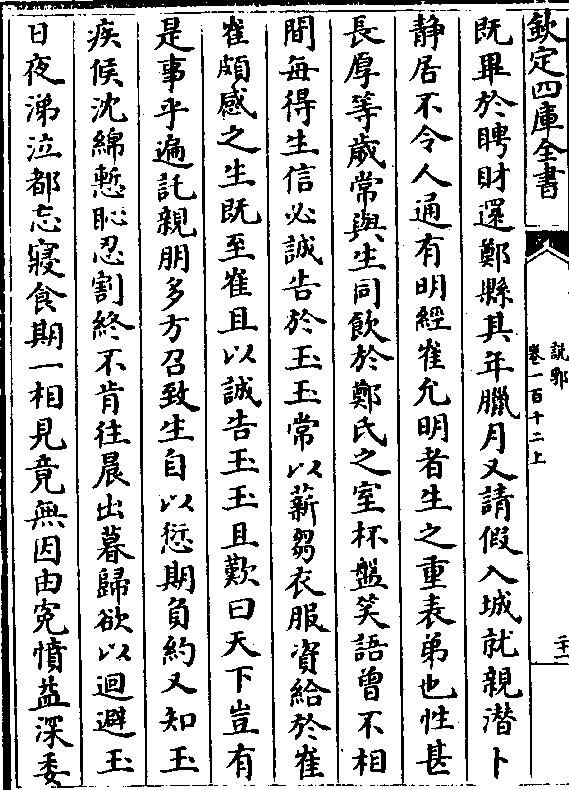 欽定四庫全書
說郛
卷一百十二上
二十一
既畢於聘財還鄭縣其年臘月又請假入城就親潜卜
静居不令人通有明經崔允明者生之重表弟也性甚
長厚等歲常與生同飲於鄭氏之室杯盤笑語曽不相
間每得生信必誠告於玉玉常以薪芻衣服資給於崔
崔頗感之生既至崔且以誠告玉玉且歎曰天下豈有
是事乎遍託親朋多方召致生自以愆期負約又知玉
疾候沈綿慙恥忍割終不肯往晨出暮歸欲以迴避玉
日夜涕泣都忘寢食期一相見竟無因由寃憤益深委